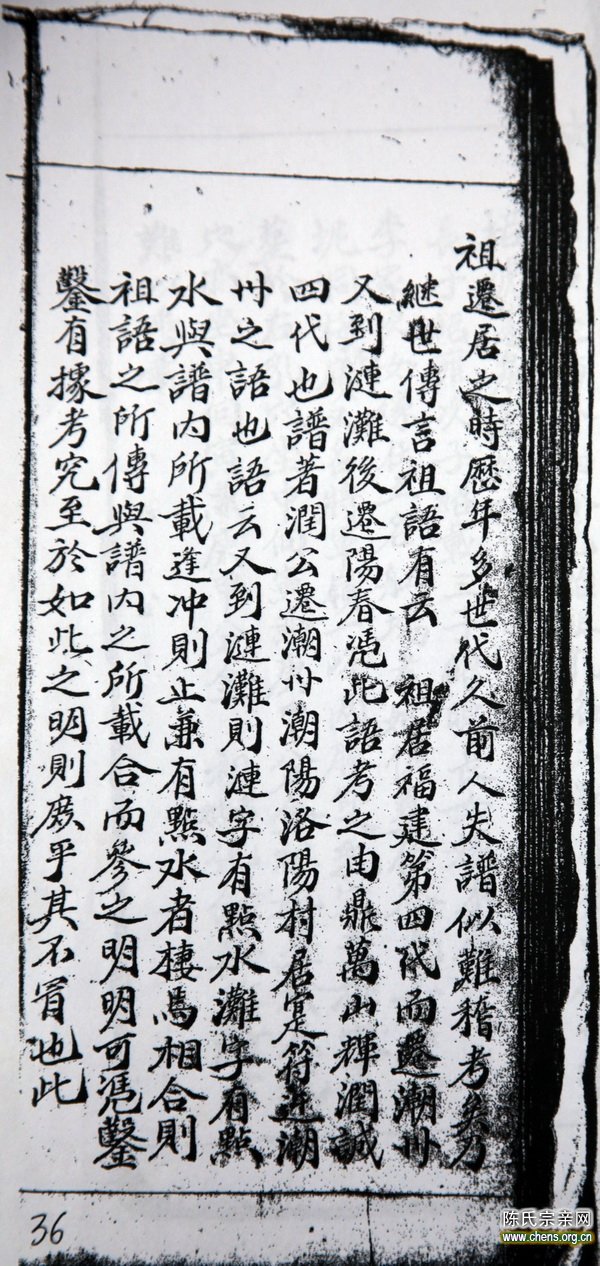 祖遷居之時歷年多世代久前人失譜似難稽考矣乃
継世傳言祖語有云 祖居福建第四代而遷潮州
又到漣灘後遷陽春憑此語考之由鼎萬山輝潤誠
四代也譜著潤公遷潮州潮陽洛陽村居寔符遷潮
州之語也語云又到漣灘則漣字有點水灘字有點
水與譜内所載逢冲則止兼有點水者棲馬相合則
祖語之所傳與譜内之所載合而參之明明可憑鑿
鑿有據考究至於如此之明則庶乎其不冒也此
36
陈氏宗亲网
www.chens.org.cn